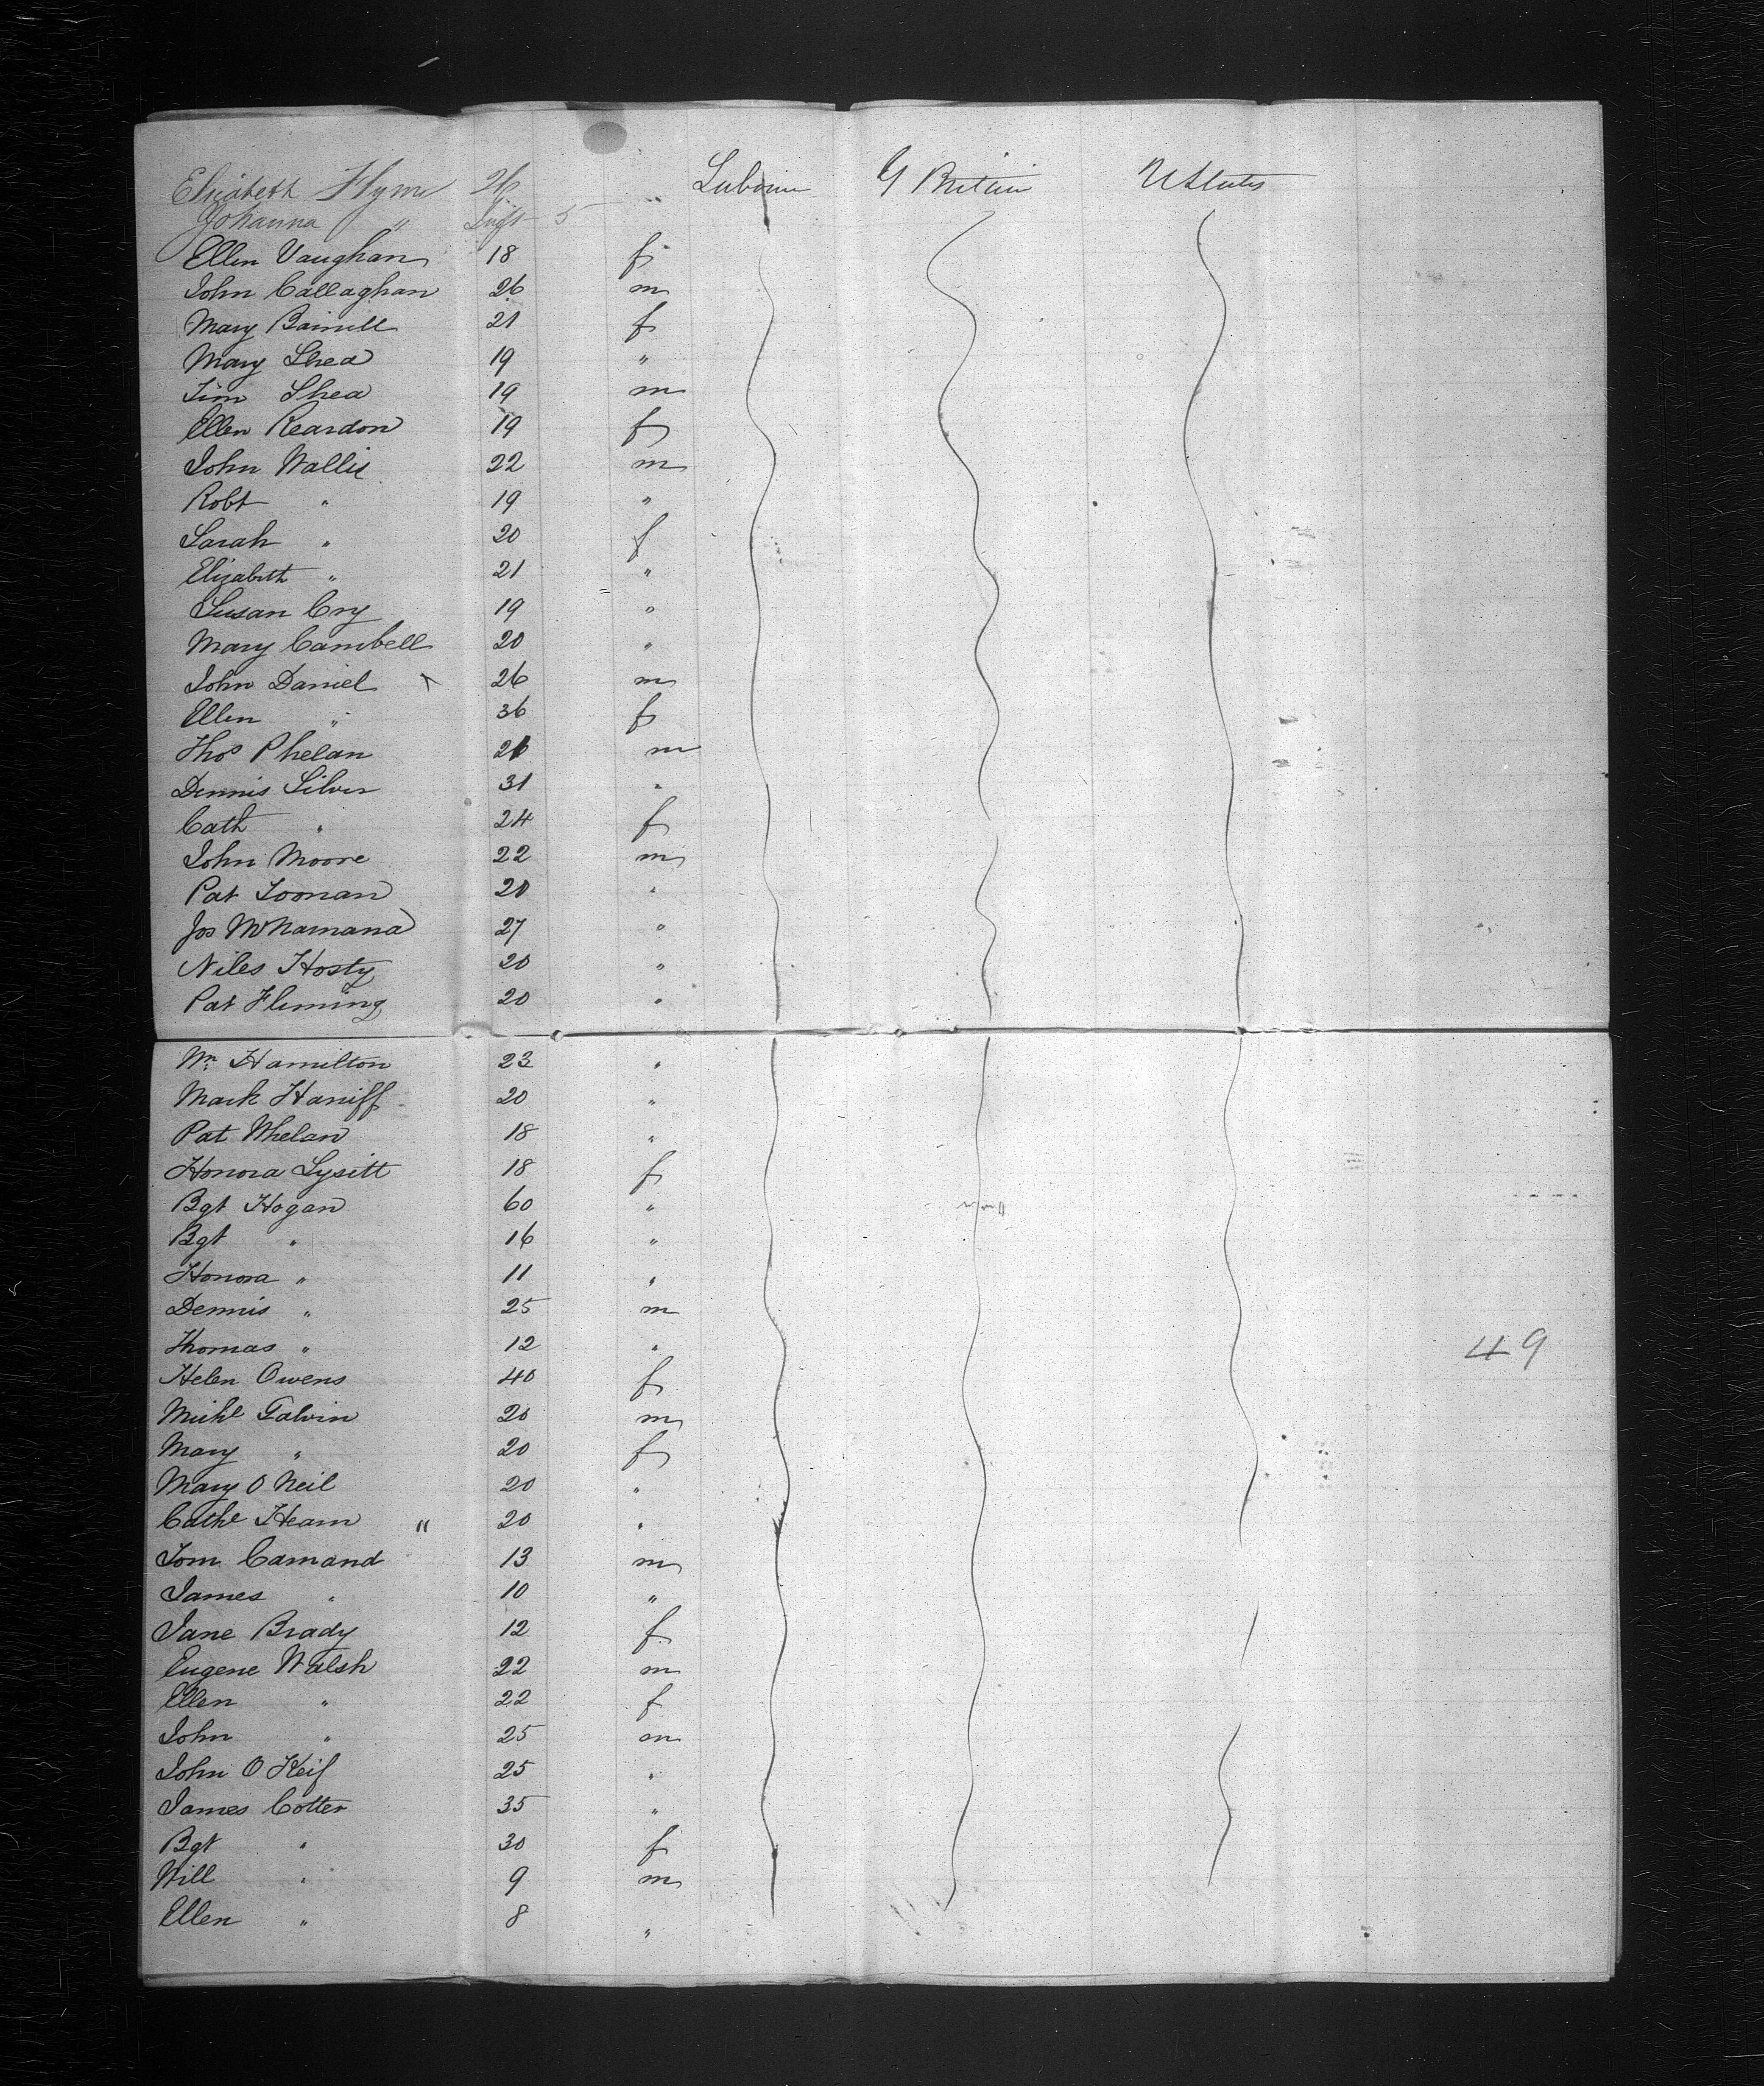 Elizabeth Flynn 26 " Labourer G Britain U States
Johanna " Inft 5
Ellen Vaughan 18 f
John Callaghan 26 m
Mary 21 f
Mary Shea 19 "
Tim Shea 19 m
Ellen Reardon 19 f
John Wallis 22 m
Robt " 19 "
Sarah " 20 f
Elizabeth " 21 "
Susan Cry 19 "
Mary Cambell 20 "
John Daniel 26 m
Ellen " 36 f
Thos Phelan m
Dennis Silver 31 "
Cath " 24 f
John Moore 22 m
Pat Toonan 20 "
Jos McNamana 27 "
Niles Hosty 20 "
Pat Fleming 20 "
Wm Hamilton 23 "
Mark Haniff 20 "
Pat Whelan 18 "
Honora Lysitt 18 f
Bgt Hogan 60 "
Bgt " 16 "
Honora " 11 "
Dennis " 25 m
Thomas " 12 " 49
Helen Owens 40 f
Michl Galvin 20 m
Mary " 20 f
Mary O Neil 20 "
Cathe Hearn " 20 "
Tom Camand 13 m
James " 10 "
Jane Brady 12 f
Eugene Walsh 22 m
Ellen " 22 f
John " 25 m
John O Keif 25 "
James Cotter 35 "
Bgt " 30 f
Will " 9 m
Ellen " 8 "